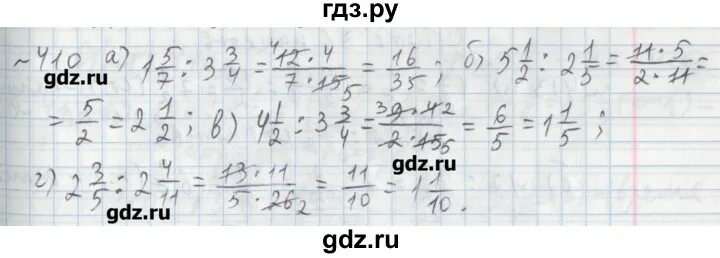 гдз.ру
~410 а) 1 5/7 : 3 3/4 = 12·4/7·15 5 = 16/35; б) 5 1/2 : 2 1/5 = 11·5/2·11 =
gdz.ru
gdz.ru
= 5/2 = 2 1/2; в) 4 1/2 : 3 3/4 = 3 9·4 2/2·15 5 = 6/5 = 1 1/5;
gdz.ru
г) 2 3/5 : 2 4/11 = 13·11/5·26 2 = 11/10 = 1 1/10.
gdz.ru
gdz.ru